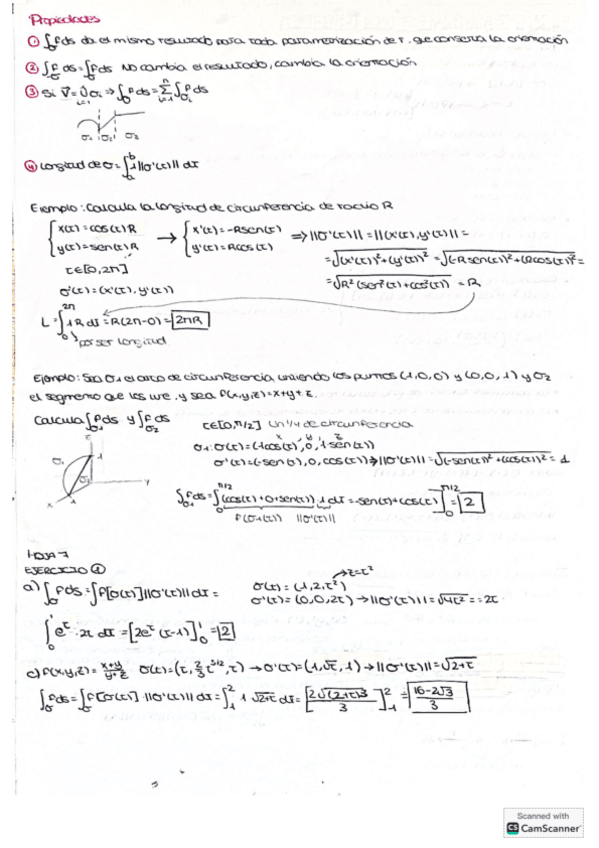 Propiedades
① ∫σ f ds da el mismo resultado para toda parametrización de r. que conserva la orientación
② ∫σ f ds = ∫σ̄ f ds No cambia el resultado, cambia la orientación
③ Si V⃗ = ∪ᵢ₌₁ σᵢ ⇒ ∫σ f ds = Σⁿᵢ₌₁ ∫σᵢ f ds
σ₁ σ₂
④ Longitud de σ = ∫ₐᵇ 1 ||σ'(t)|| dt
Ejemplo: Calcula la longitud de circunferencia de radio R
{ x(t) = cos(t)R → { x'(t) = -Rsen(t) ⇒ ||σ'(t)|| = ||(x'(t), y'(t)|| =
{ y(t) = sen(t)R { y'(t) = Rcos(t) = √(x'(t))² + (y'(t))² = √(-Rsen(t))² + (Rcos(t))² =
t∈[0,2π] = √R² (sen²(t) + cos²(t)) = R
σ'(t) = (x'(t), y'(t))
L = ∫₀²π 1 R dt = R(2π-0) = 2πR
por ser longitud
Ejemplo: Sea σ₁ el arco de circunferencia, uniendo los puntos (1,0,0) y (0,0,1) y σ₂
el segmento que los une, y sea f(x,y,z) = x+y+z.
Calcula ∫σ₁ f ds y ∫σ₂ f ds t∈[0,π/2] Un 1/4 de circunferencia
x y z
σ₁: σ(t) = (1cos(t), 0, 1·sen(t))
σ'(t) = (-sen(t), 0, cos(t)) ⇒ ||σ'(t)|| = √(-sen(t))² + (cos(t))² = 1
z σ₁ 1 σ₂ y x 1
∫σ₁ f ds = ∫₀^π/2 (cos(t) + 0 + sen(t)) 1 dt = -sen(t) + cos(t) ]₀^π/2 = 2
f(σ₁(t)) ||σ'(t)||
HOJA 7
EJERCICIO ①
a) ∫σ f ds = ∫ f[σ(t)] ||σ'(t)|| dt = σ(t) = (1, 2, t²) → z = t²
σ'(t) = (0,0,2t) → ||σ'(t)|| = √4t² = 2t
∫₀¹ eᵗ · 2t dt = [2eᵗ (t-1)]₀¹ = 2
c) f(x,y,z) = x+y/y+z σ(t) = (t, 2/3 t^3/2, t) → σ'(t) = (1, √t, 1) → ||σ'(t)|| = √2+t
∫σ f ds = ∫σ f[σ(t)] · ||σ'(t)|| dt = ∫₁² 1 √2+t dt = [2√(2+t)³/3]₁² = 16-2√3/3
Scanned with
CS CamScanner